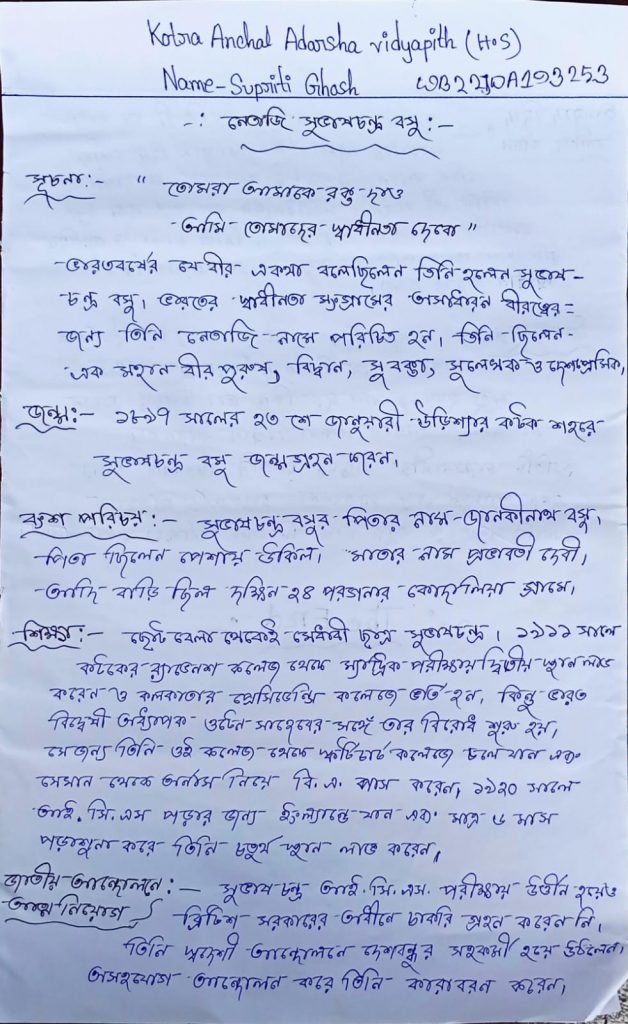 Kotra Anchal Adarsha vidyapith (H.S)
Name-Supriti Ghosh WB22JDA193253
-: নেতাজি সুভাষচন্দ্র বসু :-
সূচনা:- " তোমরা আমাকে রক্ত দাও
আমি তোমাদের স্বাধীনতা দেবো "
ভারতবর্ষের যে বীর একথা বলেছিলেন তিনি হলেন সুভাষ-
চন্দ্র বসু। ভারতের স্বাধীনতা সংগ্রামের অসাধারন বীরত্বের=
জন্য তিনি নেতাজি নামে পরিচিত হন। তিনি ছিলেন
এক মহান বীর পুরুষ, বিদ্বান, সুবক্তা, সুলেখক ও দেশপ্রেমিক।
জন্ম:- ১৮৯৭ সালের ২৩ শে জানুয়ারী উড়িশ্যার কটক শহরে
সুভাষচন্দ্র বসু জন্মগ্রহন করেন।
বংশ পরিচয়:- সুভাষচন্দ্র বসুর পিতার নাম জানকীনাথ বসু।
পিতা ছিলেন পেশায় উকিল। মাতার নাম প্রভাবতী দেবী।
আদি বাড়ি ছিল দক্ষিন ২৪ পরগনার কোদালিয়া গ্রামে।
শিক্ষা:- ছোট বেলা থেকেই মেধাবী ছাত্র সুভাষচন্দ্র। ১৯১১ সালে
কটকের র‍্যাভেনশ কলেজ থেকে ম্যাট্রিক পরীক্ষায় দ্বিতীয় স্থান লাভ
করেন ও কলকাতার প্রেসিডেন্সি কলেজে ভর্তি হন। কিন্তু ভারত
বিদ্বেষী অধ্যাপক ওটেন সাহেবের সঙ্গে তার বিরোধ শুরু হয়,
সেজন্য তিনি ওই কলেজ থেকে স্কটিচার্চ কলেজে চলে যান এবং
সেখান থেকে অনার্স নিয়ে বি.এ. পাস করেন। ১৯২০ সালে
আই.সি.এস পড়ার জন্য ইংল্যান্ডে যান এবং মাত্র ৬ মাস
পড়াশুনা করে তিনি চতুর্থ স্থান লাভ করেন।
জাতীয় আন্দোলনে:- সুভাষ চন্দ্র আই.সি.এস. পরীক্ষায় উর্ত্তীন হয়েও
আত্ম নিয়োগ ব্রিটিশ সরকারের অধীনে চাকরি গ্রহন করেন নি।
তিনি স্বদেশী আন্দোলনে দেশবন্ধুর সহকর্মী হয়ে উঠলেন।
অসহযোগ আন্দোলন করে তিনি কারাবরন করেন।